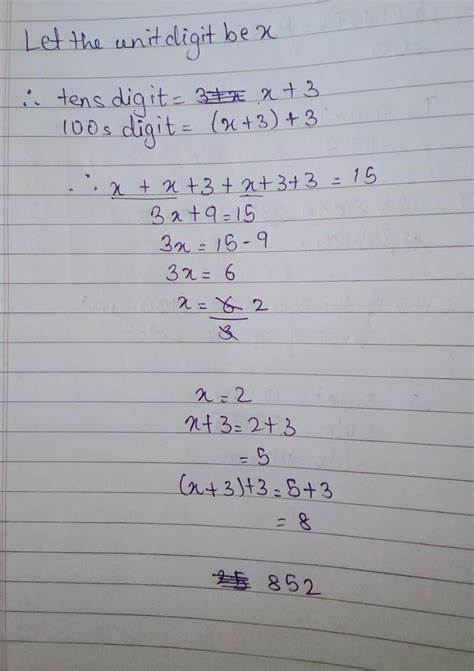 Let the unit digit be x
∴ tens digit = x + 3
100s digit = (x+3)+3
∴ x + x + 3 + x + 3 + 3 = 15
3x + 9 = 15
3x = 15 - 9
3x = 6
x = 6/3 2
x = 2
x + 3 = 2 + 3
= 5
(x+3)+3 = 5+3
= 8
852